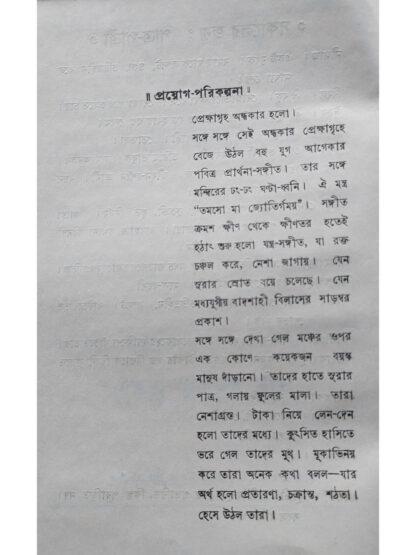 ॥ প্রয়োগ-পরিকল্পনা ॥
প্রেক্ষাগৃহ অন্ধকার হলো।
সঙ্গে সঙ্গে সেই অন্ধকার প্রেক্ষাগৃহে
বেজে উঠল বহু যুগ আগেকার
পবিত্র প্রার্থনা-সঙ্গীত। তার সঙ্গে
মন্দিরের ঢং-ঢং ঘণ্টা-ধ্বনি। ঐ মন্ত্র
“তমসো মা জ্যোতির্গময়”। সঙ্গীত
ক্রমশ ক্ষীণ থেকে ক্ষীণতর হতেই
হঠাৎ শুরু হলো যন্ত্র-সঙ্গীত, যা রক্ত
চঞ্চল করে, নেশা জাগায়। যেন
সুরার স্রোত বয়ে চলেছে। যেন
মধ্যযুগীয় বাদশাহী বিলাসের সাড়ম্বর
প্রকাশ।
সঙ্গে সঙ্গে দেখা গেল মঞ্চের ওপর
এক কোণে কয়েকজন বয়স্ক
মানুষ দাঁড়ানো। তাদের হাতে সুরার
পাত্র, গলায় ফুলের মালা। তারা
নেশাগ্রস্ত। টাকা নিয়ে লেন-দেন
হলো তাদের মধ্যে। কুৎসিত হাসিতে
ভরে গেল তাদের মুখ। মূকাভিনয়
করে তারা অনেক কথা বলল—যার
অর্থ হলো প্রতারণা, চক্রান্ত, শঠতা।
হেসে উঠল তারা।